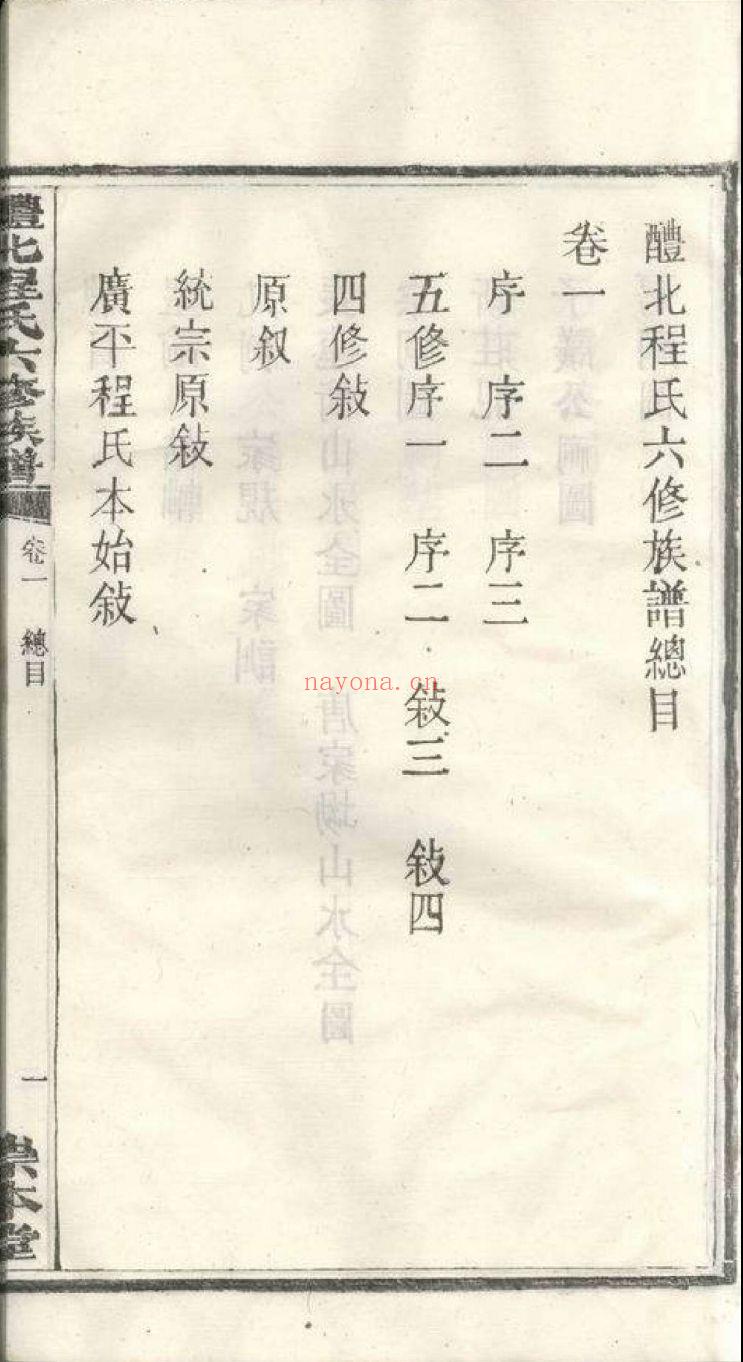 醴北程氏六修族譜總目
卷一
序 序二 序三
五修序一 序二 敍三 敍四
四修敍
原叙
統宗原敍
廣平程氏本始敍
醴北程氏六修族譜
卷一 總目
一
崇本堂
nayona.cn